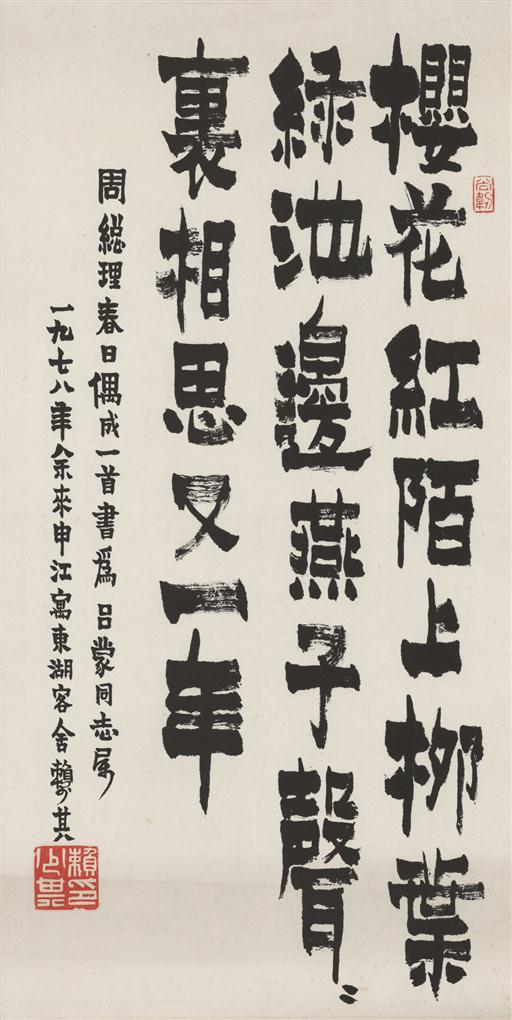 櫻花紅陌上柳葉
緑池邊燕子聲〻
裏相思又一年
周総理春日偶成一首書爲呂蒙同志属
一九七八年余來申江寓東湖客舍賴少其
賴印少其